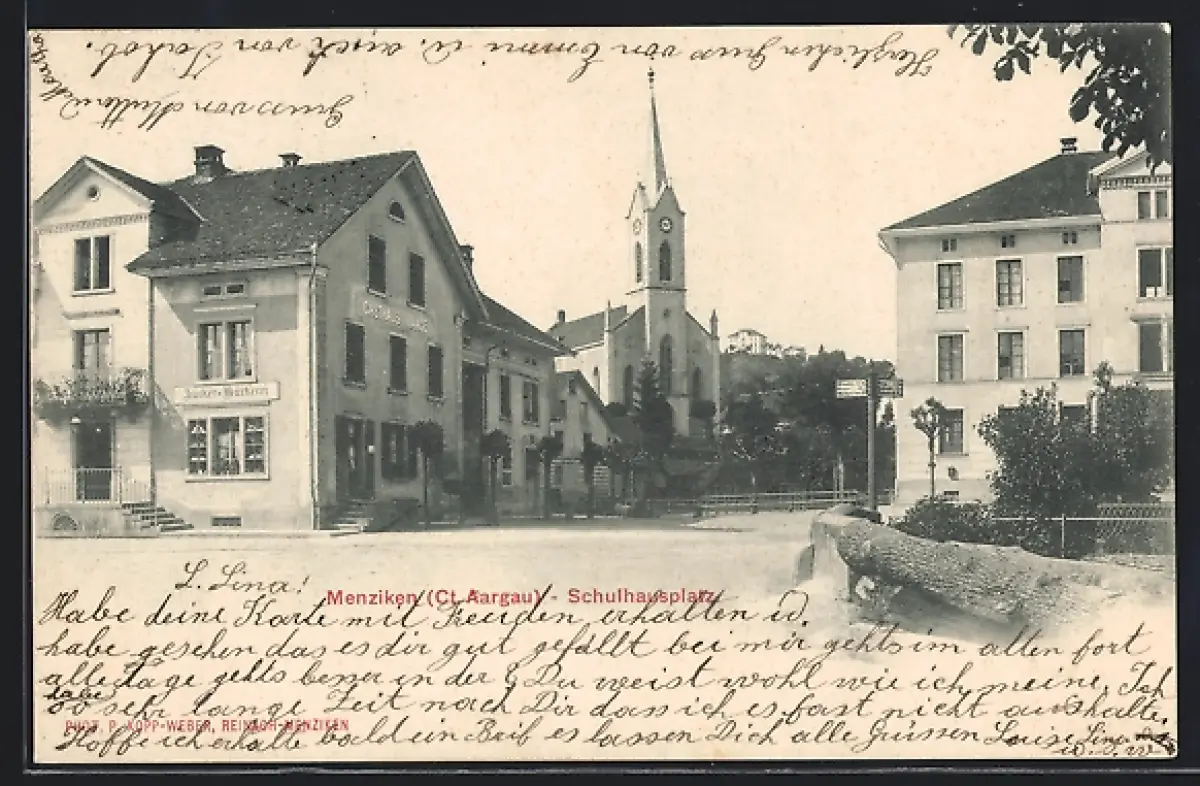 Herzlichen Gruss von Emma u. auch von Jakob.
Gruss von Mutter u.
L. Lina!
Menziken (Ct. Aargau) - Schulhausplatz
Habe deine Karte mit Freuden erhalten u.
habe gesehen das es dir gut gefällt bei mir gehts im alten fort
alle Tage gehts besser in der G Du weist wohl wie ich meine. Ich
habe
so sehr lange Zeit nach Dir dass ich es fast nicht aushalte.
PHOT. P. KOPP-WEBER, REINACH-MENZIKEN
Hoffe ich erhalte bald ein Brif es lassen Dich alle grüssen Louise Lina